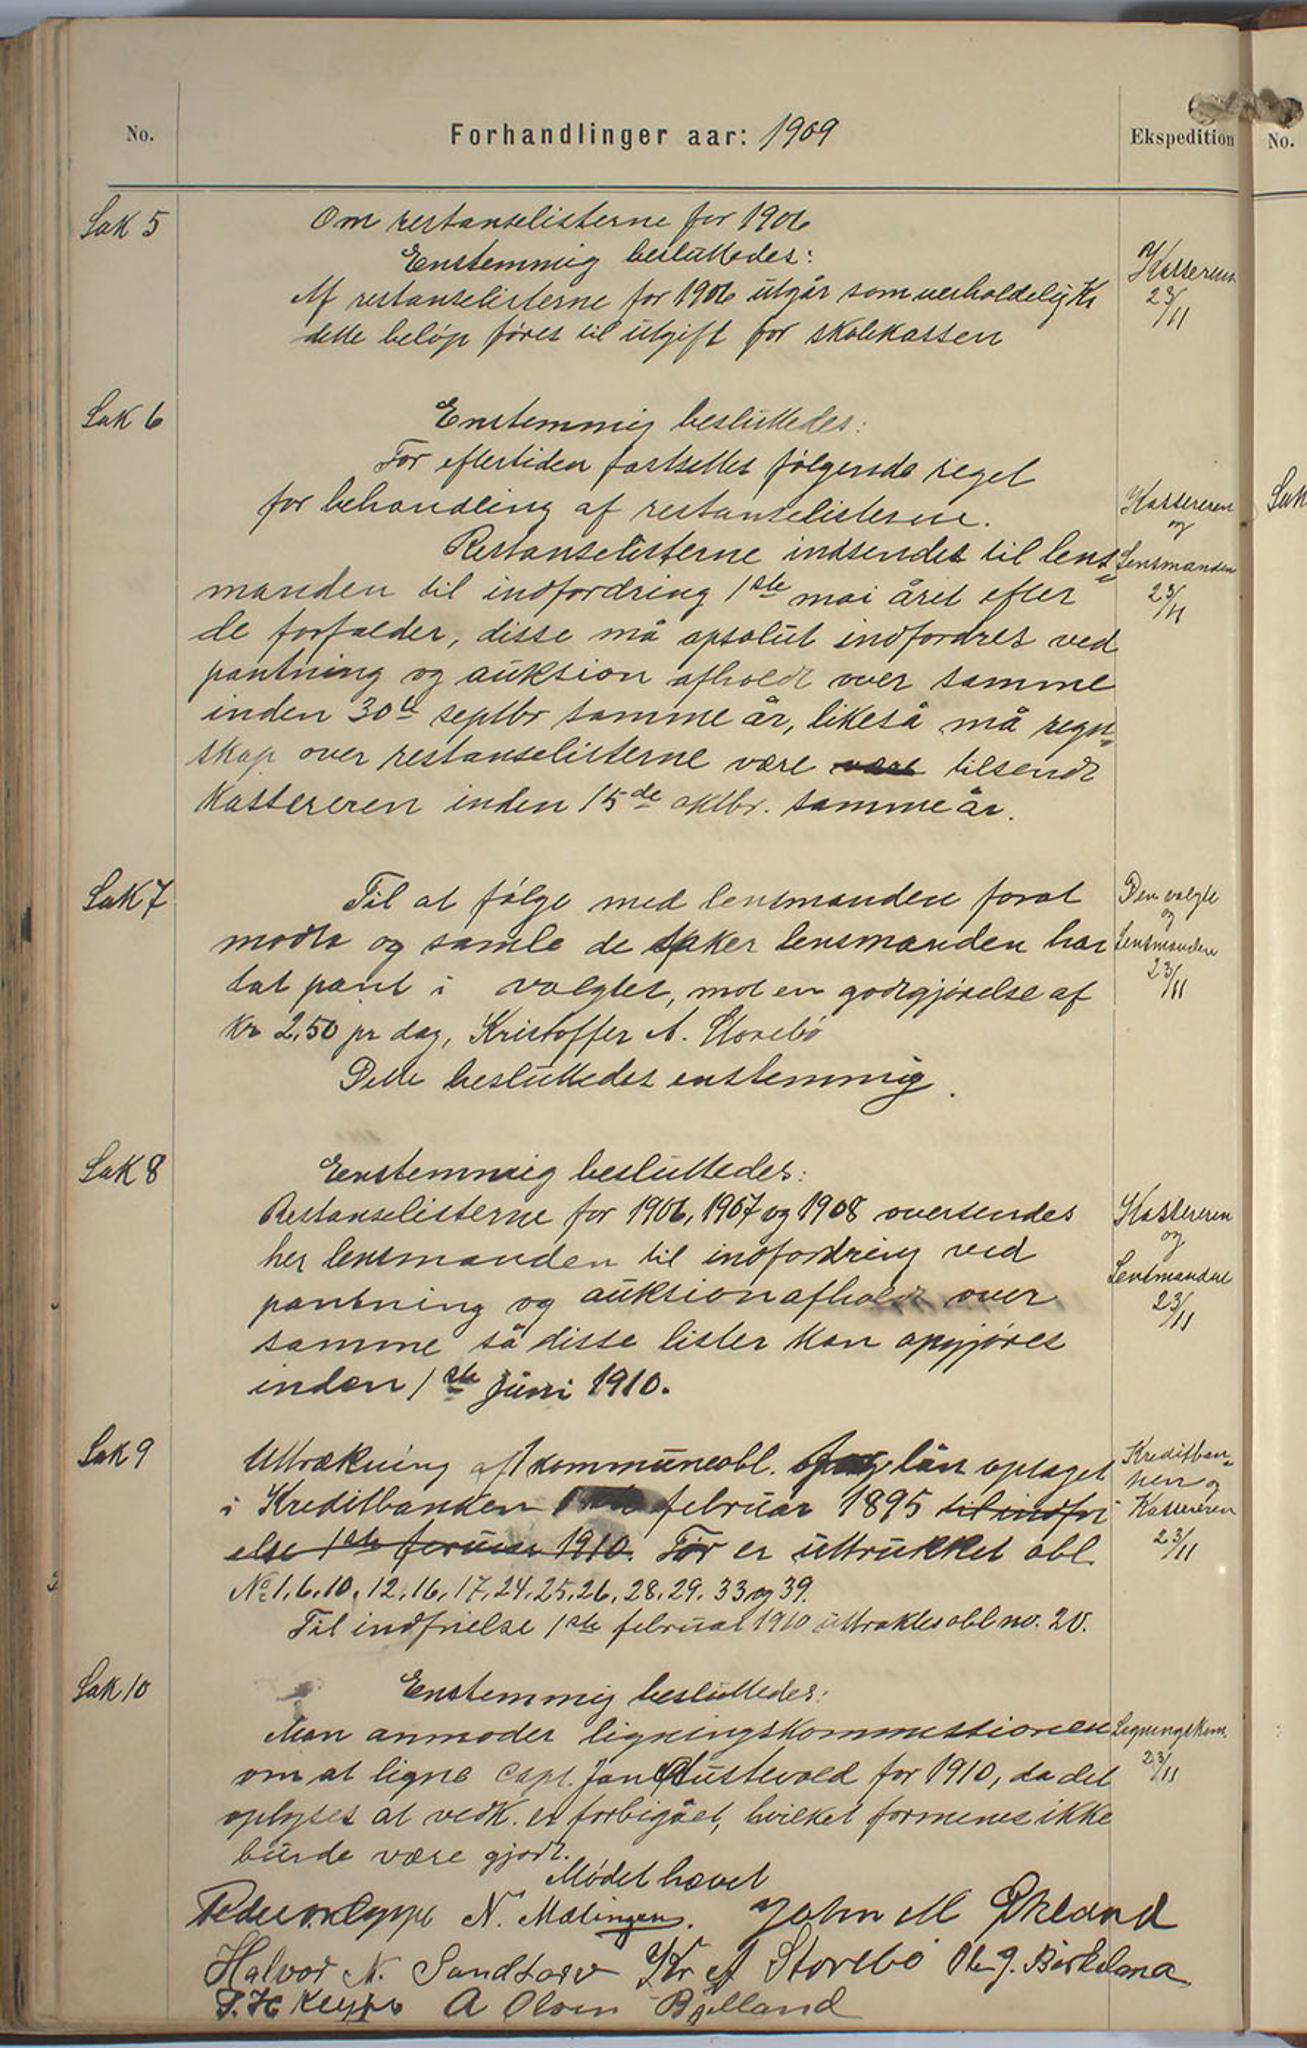 No.
Forhandlinger aar: 1909
Ekspedition
No.
Sak 5
Om restanselisterne for 1906
Enstemmig besluttedes:
Af restanselisterne for 1906 utgår som uerholdelig Kr
dette beløp føres til utgift for skolekassen
Kasseren
23/11
Sak 6
Enstemmig besluttedes:
For eftertiden fastsettes følgende regel
for behandling af restanselisterne.
Restanselisterne indsendes til lens=
manden til indfordring 1ste mai året efter
de forfalder, disse må apsolut indfordres ved
pantning og auksion afholdt over samme
inden 30te septbr samme år, likeså må regn=
skap over restanselisterne være være tilsendt
Kassereren inden 15de oktbr. samme år.
Kassereren
og
Lensmanden
23/11
Sak
Sak 7
Til at følge med lensmanden forat
modta og samle de saker lensmanden har
tat pant i valgtes, mot en godtgjørelse af
Kr 2,50 pr dag, Kristoffer A. Storebø
Dette besluttedes enstemmig.
Den valgte
og
Lensmanden
23/11
Sak 8
Enstemmig besluttedes:
Restanselisterne for 1906, 1907 og 1908 oversendes
her lensmanden til indfordring ved
pantning og auksion afholdt over
samme så disse lister kan opgjøres
inden 1ste juni 1910.
Kassereren
og
Lensmanden
23/11
Sak 9
Uttrækning af 1 kommuneobl. lån optaget
i Kreditbanken februar 1895 til indfri
else 1ste feruar 1910. Før er uttrukket obl.
No 1, 6, 10, 12, 16, 17, 24, 25, 26, 28, 29, 33 og 39.
Til indfrielse 1ste februar 1910 uttraktes obl no. 20.
Kreditban=
ken og
Kassereren
23/11
Sak 10
Enstemmig besluttedes:
Man anmoder ligningskommissionen
om at ligne capt. Jan Austevold for 1910, da det
oplyses at vedk. er forbigået, hvilket formenes ikke
burde være gjort.
Mødet hævet
Ligningskom.
23/11
Peder Kleppe N. Mælingen. John M Økland
Halvor N. Sandtorv Kr A Storebø Ole J. Birkeland
P. H Kleppe A Olsen Bjelland